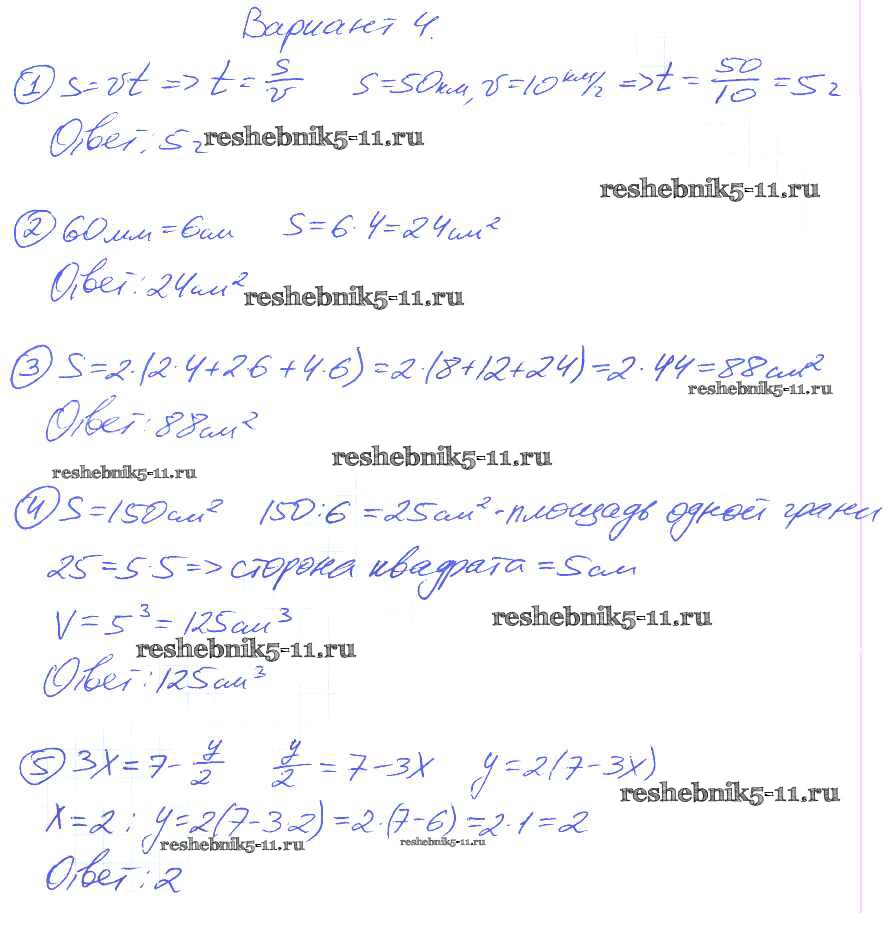 Вариант 4.
① S=vt => t = s/v S=50км, v=10 км/ч => t = 50/10 = 5ч
Ответ: 5ч reshebnik5-11.ru
reshebnik5-11.ru
② 60мм = 6см S=6·4=24см²
Ответ: 24см² reshebnik5-11.ru
③ S=2·(2·4+2·6+4·6)=2·(8+12+24)=2·44=88см²
reshebnik5-11.ru
Ответ: 88см²
reshebnik5-11.ru reshebnik5-11.ru
④ S=150см² 150:6=25см² - площадь одной грани
25=5·5=> сторона квадрата = 5см
V=5³=125см³ reshebnik5-11.ru
reshebnik5-11.ru
Ответ: 125см³
⑤ 3x=7-y/2 y/2=7-3x y=2(7-3x)
reshebnik5-11.ru
x=2: y=2(7-3·2)=2·(7-6)=2·1=2
reshebnik5-11.ru reshebnik5-11.ru
Ответ: 2